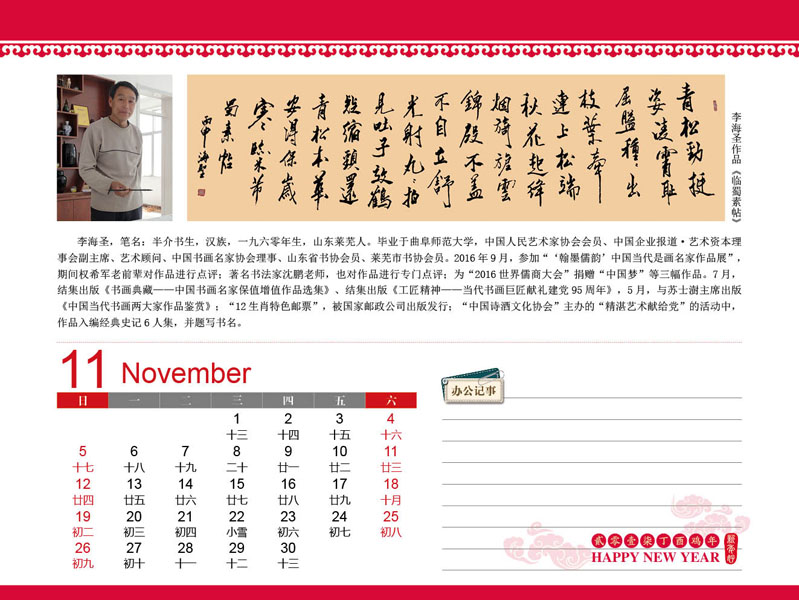 青松勁挺
姿凌霄耻
屈盤種種出
枝葉牽
連上松端
秋花起絳
烟旖旎雲
錦殷不羞
不自立舒
光射丸丸柏
見吐子效鶴
疑縮頸還
青松本無華
安得保歲
寒 臨米芾
蜀素帖
丙申 海聖
李海圣作品《临蜀素帖》
李海圣，笔名：半介书生，汉族，一九六零年生，山东莱芜人。毕业于曲阜师范大学，中国人民艺术家协会会员、中国企业报道·艺术资本理
事会副主席、艺术顾问、中国书画名家协会理事、山东省书协会员、莱芜市书协会员。2016年9月，参加“‘翰墨儒韵’中国当代是画名家作品展”，
期间权希军老前辈对作品进行点评；著名书法家沈鹏老师，也对作品进行专门点评；为“2016世界儒商大会”捐赠“中国梦”等三幅作品。7月，
结集出版《书画典藏——中国书画名家保值增值作品选集》、结集出版《工匠精神——当代书画巨匠献礼建党95周年》，5月，与苏士澍主席出版
《中国当代书画两大家作品鉴赏》；“12生肖特色邮票”，被国家邮政公司出版发行；“中国诗酒文化协会”主办的“精湛艺术献给党”的活动中，
作品入编经典史记6人集，并题写书名。
11 November
日 一 二 三 四 五 六
1 2 3 4
十三 十四 十五 十六
5 6 7 8 9 10 11
十七 十八 十九 二十 廿一 廿二 廿三
12 13 14 15 16 17 18
廿四 廿五 廿六 廿七 廿八 廿九 十月
19 20 21 22 23 24 25
初二 初三 初四 小雪 初六 初七 初八
26 27 28 29 30
初九 初十 十一 十二 十三
办公记事
贰零壹柒丁酉鸡年
HAPPY NEW YEAR